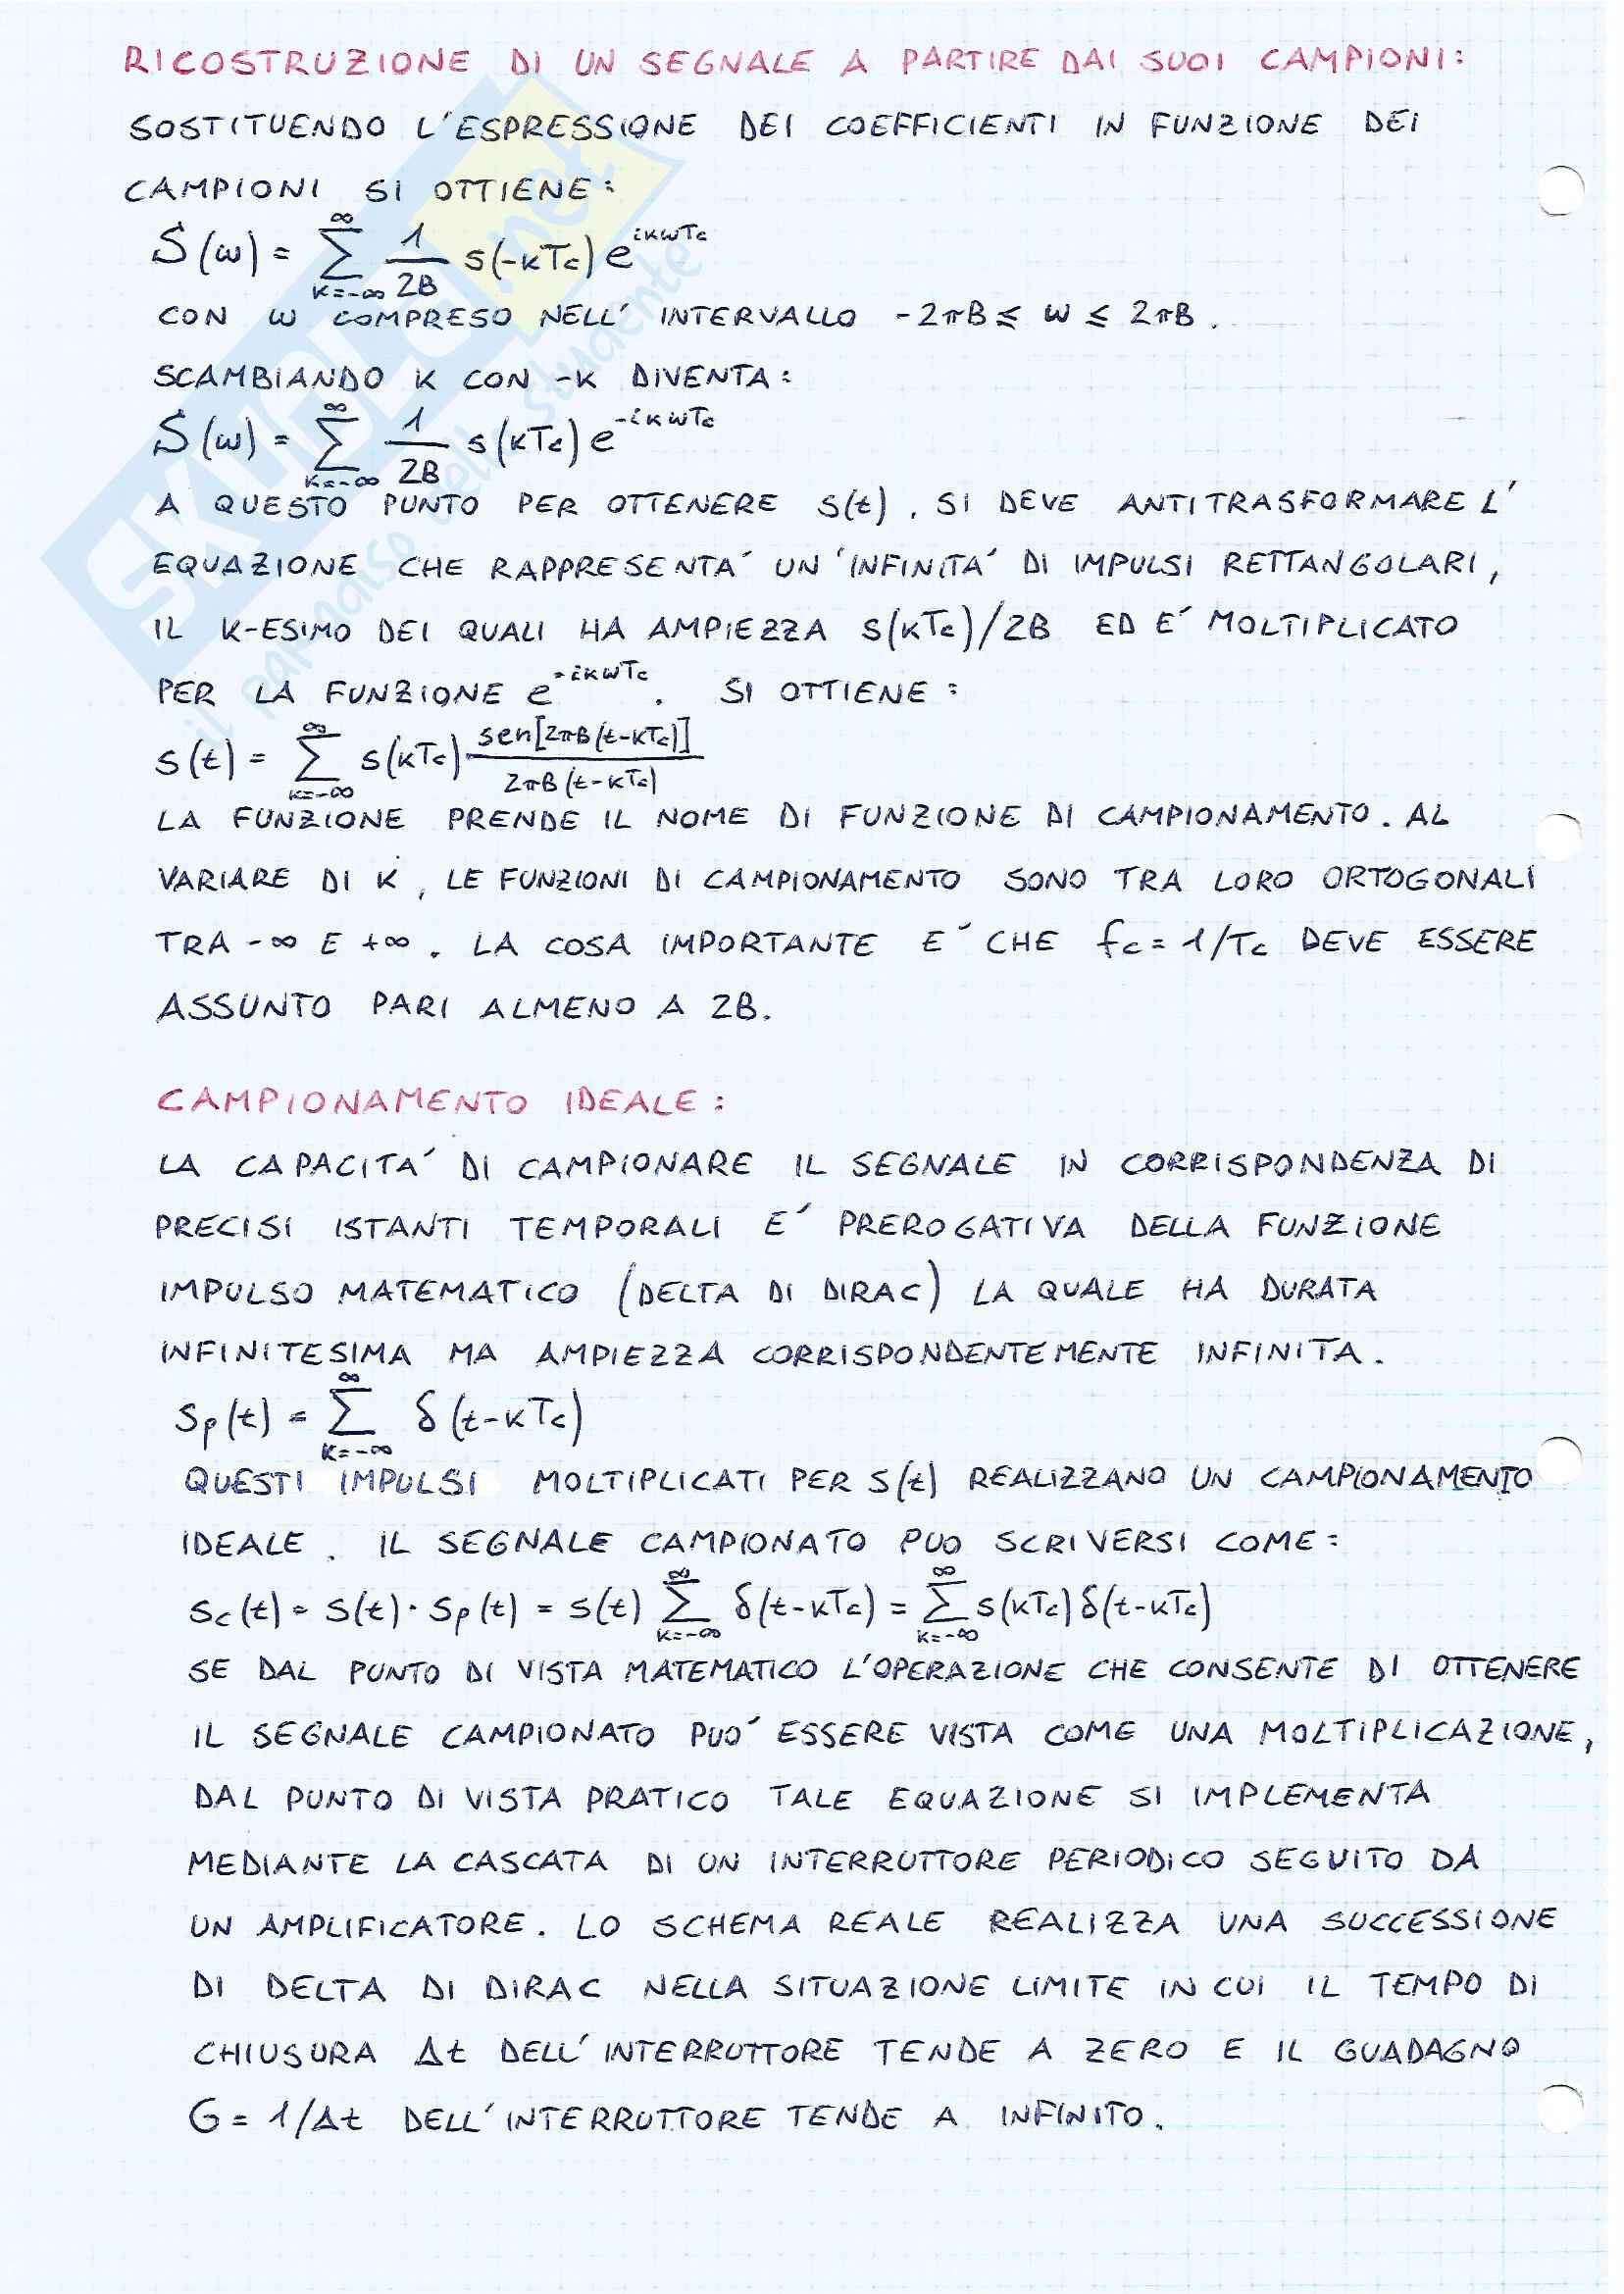 RICOSTRUZIONE DI UN SEGNALE A PARTIRE DAI SUOI CAMPIONI:
SOSTITUENDO L'ESPRESSIONE DEI COEFFICIENTI IN FUNZIONE DEI
CAMPIONI SI OTTIENE:
Ṡ(ω) = ∑_{k=-∞}^{∞} 1/2B s(-kTc) e^{ikωTc}
CON ω COMPRESO NELL'INTERVALLO -2πB ≤ ω ≤ 2πB.
SCAMBIANDO K CON -K DIVENTA:
Ṡ(ω) = ∑_{k=-∞}^{∞} 1/2B s(kTc) e^{-ikωTc}
A QUESTO PUNTO PER OTTENERE s(t), SI DEVE ANTITRASFORMARE L'
EQUAZIONE CHE RAPPRESENTA' UN'INFINITA' DI IMPULSI RETTANGOLARI,
IL K-ESIMO DEI QUALI HA AMPIEZZA s(kTc)/2B ED E' MOLTIPLICATO
PER LA FUNZIONE e^{-ikωTc}. SI OTTIENE:
s(t) = ∑_{k=-∞}^{∞} s(kTc) sen[2πB(t-kTc)] / 2πB(t-kTc)
LA FUNZIONE PRENDE IL NOME DI FUNZIONE DI CAMPIONAMENTO. AL
VARIARE DI K, LE FUNZIONI DI CAMPIONAMENTO SONO TRA LORO ORTOGONALI
TRA -∞ E +∞. LA COSA IMPORTANTE E' CHE fc = 1/Tc DEVE ESSERE
ASSUNTO PARI ALMENO A 2B.
CAMPIONAMENTO IDEALE:
LA CAPACITA' DI CAMPIONARE IL SEGNALE IN CORRISPONDENZA DI
PRECISI ISTANTI TEMPORALI E' PREROGATIVA DELLA FUNZIONE
IMPULSO MATEMATICO (DELTA DI DIRAC) LA QUALE HA DURATA
INFINITESIMA MA AMPIEZZA CORRISPONDENTEMENTE INFINITA.
Sp(t) = ∑_{k=-∞}^{∞} δ(t-kTc)
QUESTI IMPULSI MOLTIPLICATI PER S(t) REALIZZANO UN CAMPIONAMENTO
IDEALE. IL SEGNALE CAMPIONATO PUO SCRIVERSI COME:
Sc(t) = S(t)·Sp(t) = s(t) ∑_{k=-∞}^{∞} δ(t-kTc) = ∑_{k=-∞}^{∞} s(kTc) δ(t-kTc)
SE DAL PUNTO DI VISTA MATEMATICO L'OPERAZIONE CHE CONSENTE DI OTTENERE
IL SEGNALE CAMPIONATO PUO' ESSERE VISTA COME UNA MOLTIPLICAZIONE,
DAL PUNTO DI VISTA PRATICO TALE EQUAZIONE SI IMPLEMENTA
MEDIANTE LA CASCATA DI UN INTERRUTTORE PERIODICO SEGUITO DA
UN AMPLIFICATORE. LO SCHEMA REALE REALIZZA UNA SUCCESSIONE
DI DELTA DI DIRAC NELLA SITUAZIONE LIMITE IN CUI IL TEMPO DI
CHIUSURA Δt DELL'INTERRUTTORE TENDE A ZERO E IL GUADAGNO
G = 1/Δt DELL'INTERRUTTORE TENDE A INFINITO.
SKUOLA.net
il paradiso dello studente